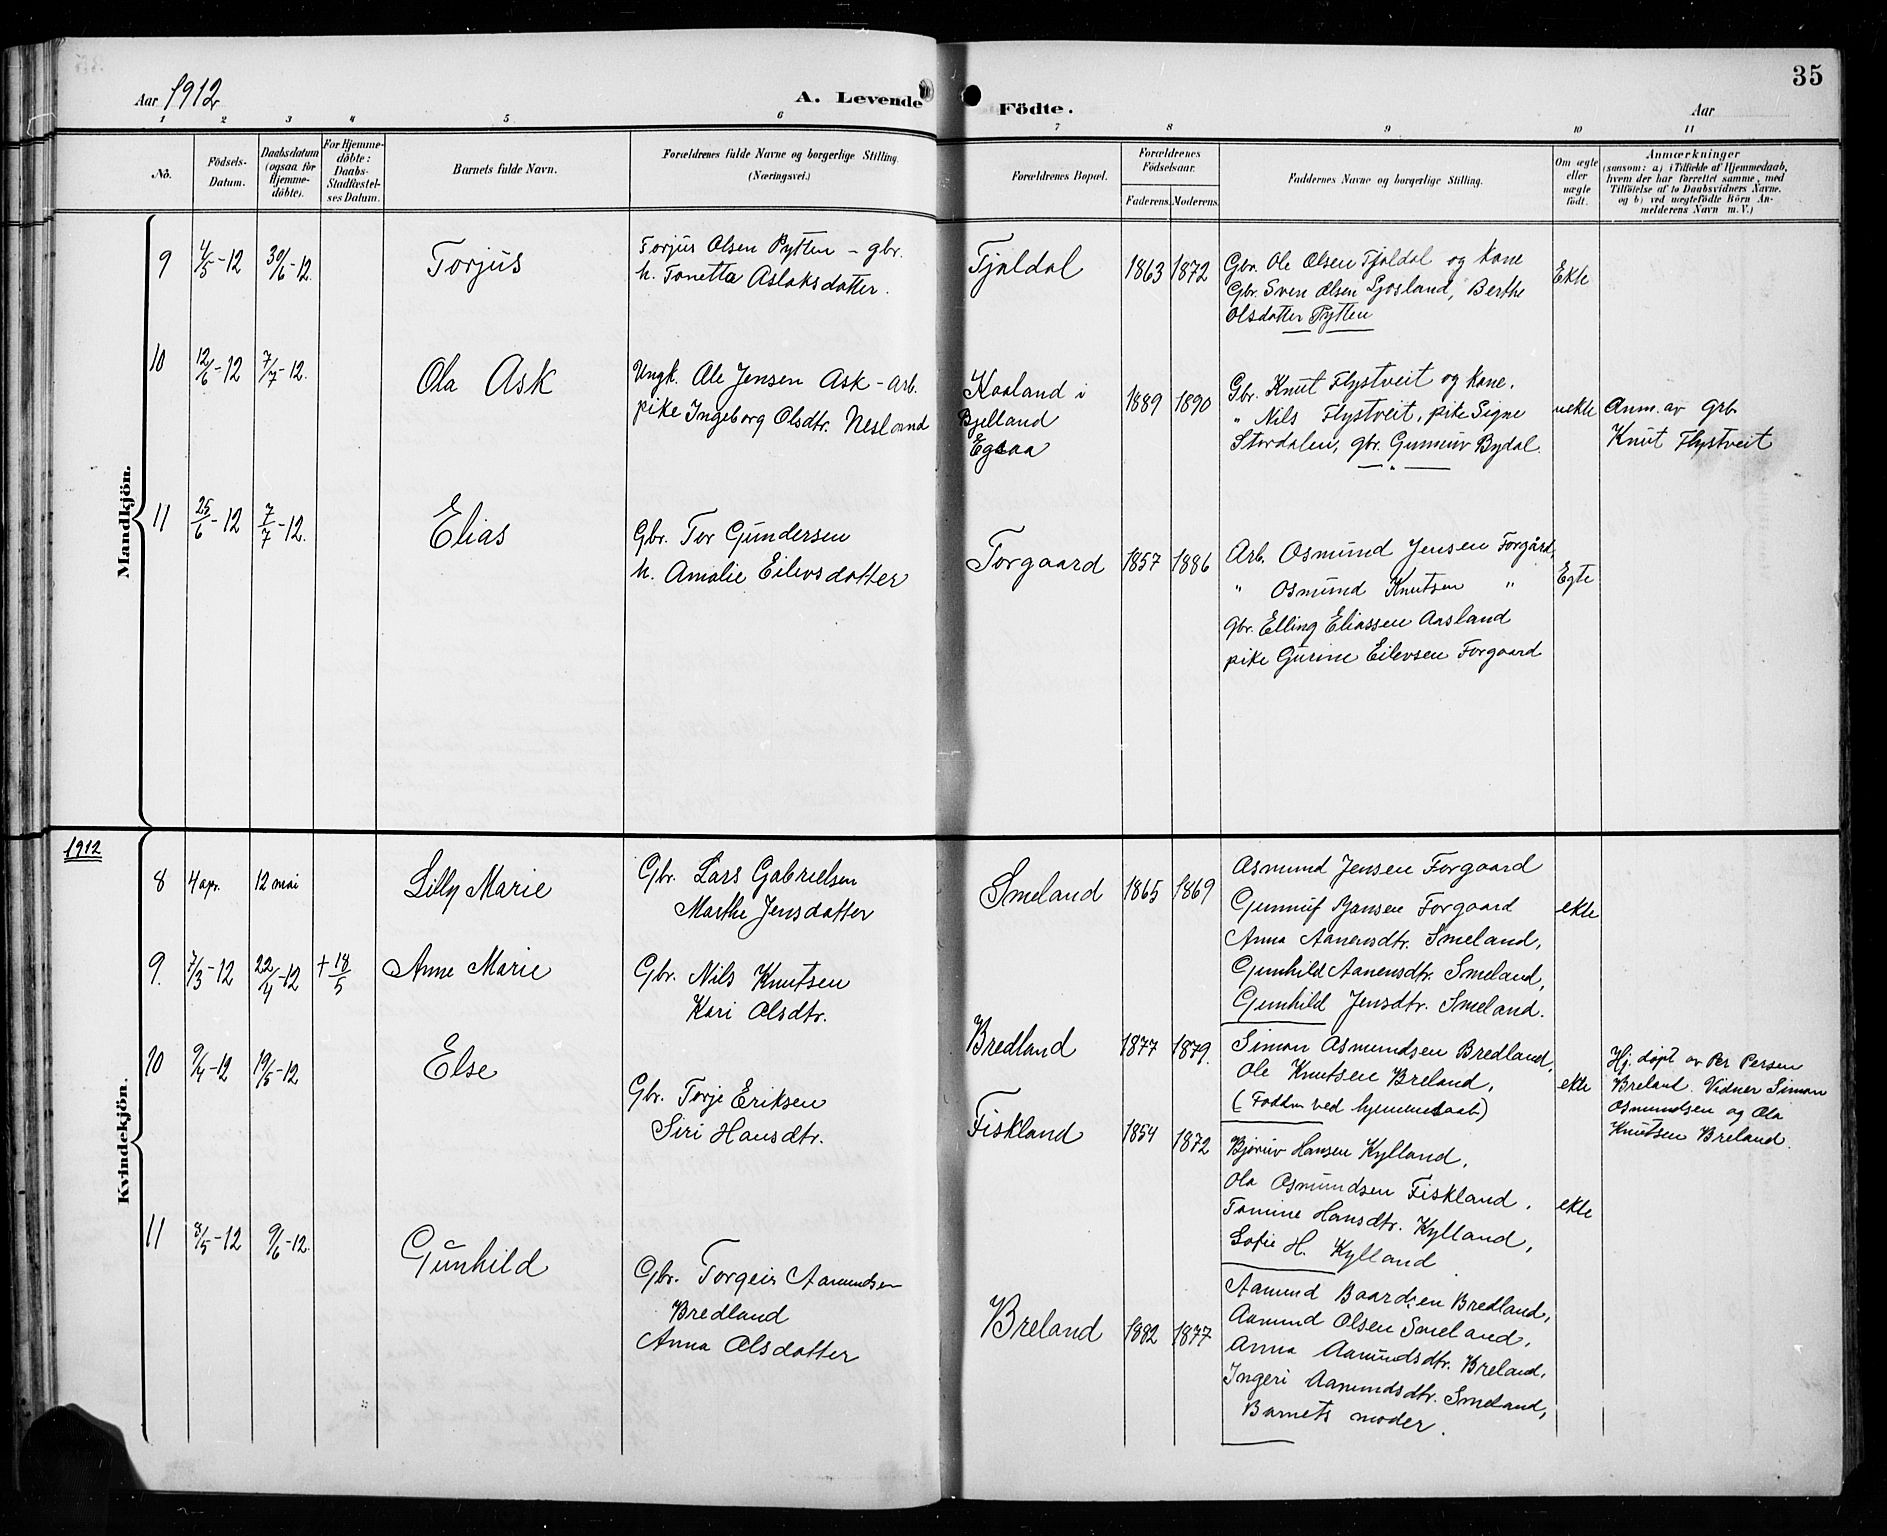 Aar 1912
A. Levende Födte.
Aar
35
1 2 3 4 5 6 7 8 9 10 11
No.
Födsels-Datum.
Daabsdatum (ogsaa for Hjemme-döbte).
For Hjemme-döbte: Daabs-Stadfæstel-ses Datum.
Barnets fulde Navn.
Forældrenes fulde Navne og borgerlige Stilling.
(Næringsvei.)
Forældrenes Bopæl.
Forældrenes Födselsaar.
Faderens. Moderens.
Faddernes Navne og borgerlige Stilling.
Om ægte eller uægte födt.
Anmærkninger
(saasom: a) i Tilfælde af Hjemmedaab,
hvem der har forrettet samme, med
Tilföielse af to Daabsvidners Navne,
og b) ved uægtefödte Börn An-
melderens Navn m. V.)
Mandkjön.
9 4/5-12 30/6-12. Torjus
Torjus Olsen Pytten - gbr.
h. Tonetta Aslaksdatter.
Tjaldal 1863 1872
Gbr. Ole Olsen Tjaldal og kone
Gbr. Sven Olsen Ljosland, Berthe
Olsdatter Pytten
Ekte
10 12/6-12 7/7-12. Ola Ask
Ungk. Ole Jensen Ask - arb.
pike Ingeborg Olsdtr. Nesland
Kaaland i
Bjelland
Egsaa
1889 1890
Gbr. Knut Flystveit og kone,
" Nils Flystveit, pike Signe
Stordalen, gbr. Gunnuv Bydal.
uekte
Anm. av grb.
Knut Flystveit
11 25/6-12 7/7-12. Elias
Gbr. Tor Gundersen
h. Amalie Eilevsdatter
Forgaard 1857 1886
Arb. Osmund Jensen Forgård,
" Osmund Knutsen "
gbr. Elling Eliassen Aasland
pike Gurine Eilevsen Forgaard
Egte
1912
Kvindekjön.
8 4 apr. 12 mai Lilly Marie
Gbr. Lars Gabrielsen
Marthe Jensdatter
Smeland 1865 1869
Asmund Jensen Forgaard
Gunnuf Jansen Forgaard
Anna Aanensdtr. Smeland,
Gunhild Aanensdtr. Smeland,
Gunhild Jensdtr. Smeland.
ekte
9. 7/3-12 22/4-12 + 18/5 Anne Marie
Gbr. Nils Knutsen
Kari Olsdtr.
Bredland 1877 1879.
Simon Asmundsen Bredland,
Ole Knutsen Breland,
(Faddere ved hjemmedaab)
ekte
Hj. døpt av Per Persen
Breland. Vidner Simon
Osmundsen og Ola
Knutsen Breland.
10 9/4-12 19/5-12 Else
Gbr. Torje Eriksen
Siri Hansdtr.
Fiskland 1854 1872
Bjøruv Hansen Kylland,
Ola Osmundsen Fiskland,
Tomine Hansdtr. Kylland,
Sofie H. Kylland
ekte
11 8/5-12 9/6-12. Gunhild
Gbr. Torgeir Aamundsen
Bredland
Anna Olsdatter
Breland 1882 1877
Aamund Baardsen Bredland,
Aamund Olsen Smeland,
Anna Aamundsdtr. Breland,
Ingeri Aamundsdtr. Smeland,
Barnets moder.